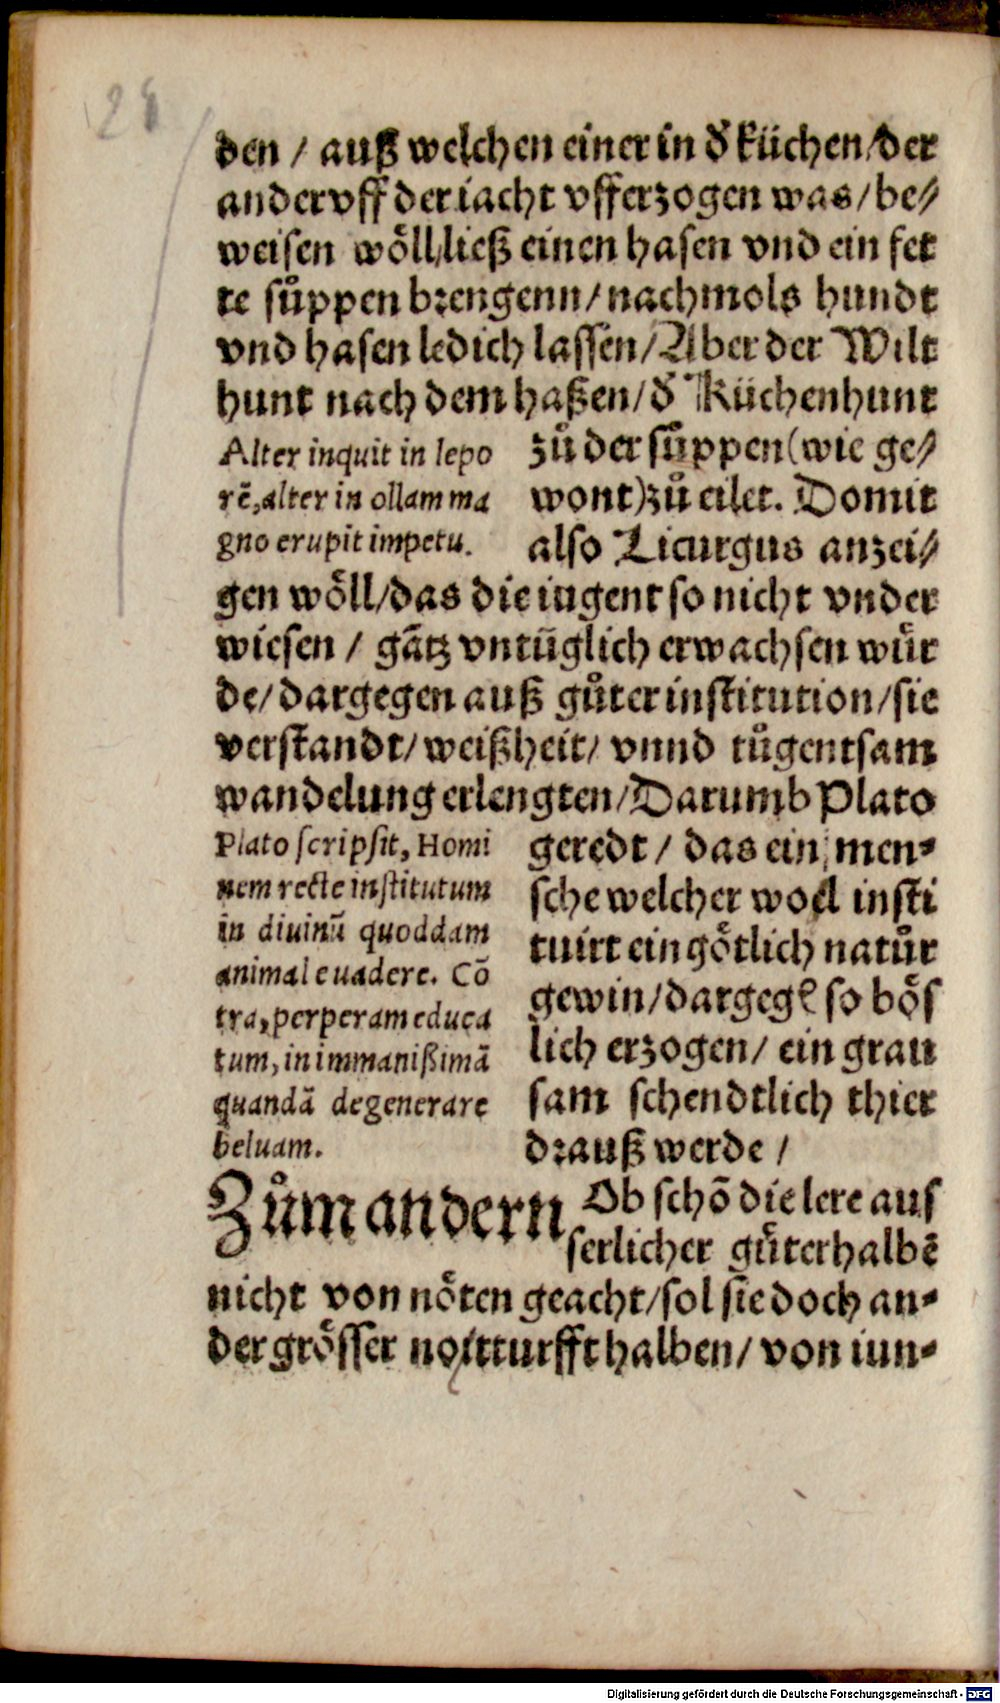 den / auß welchen einer in đ küchen/der
ander vff der iacht vfferzogen was/be⸗
weisen wöll/ließ einen hasen vnd ein fet
te sůppen brengenn/nachmols hundt
vnd hasen ledich lassen/Aber der Wilt
hunt nach dem haßen/đ Küchenhunt
zů der sůppen(wie ge⸗
wont)zů eilet. Domit
also Licurgus anzei⸗
Alter inquit in lepo
rē,alter in ollam ma
gno erupit impetu.
gen wöll/das die iugent so nicht vnder
wiesen / gātz vntüglich erwachsen wůr
de/dargegen auß gůter institution/sie
verstandt/weißheit/ vnnd tůgentsam
wandelung erlengten/Darumb Plato
geredt / das ein men⸗
sche welcher woel insti
tuirt ein götlich natůr
gewin/dargegē so bös
lich erzogen/ ein grau
sam schendtlich thier
drauß werde /
Plato scripsit, Homi
nem recte institutum
in diuinū quoddam
animal euadere. Cō
tra,perperam educa
tum,in immanißimā
quandā degenerare
beluam.
Zům andern Ob schō die lere aus
serlicher gůterhalbē
nicht von nöten geacht/sol sie doch an⸗
der grösser noitturfft halben/ von iun⸗
Digitalisierung gefördert durch die Deutsche Forschungsgemeinschaft - DFG